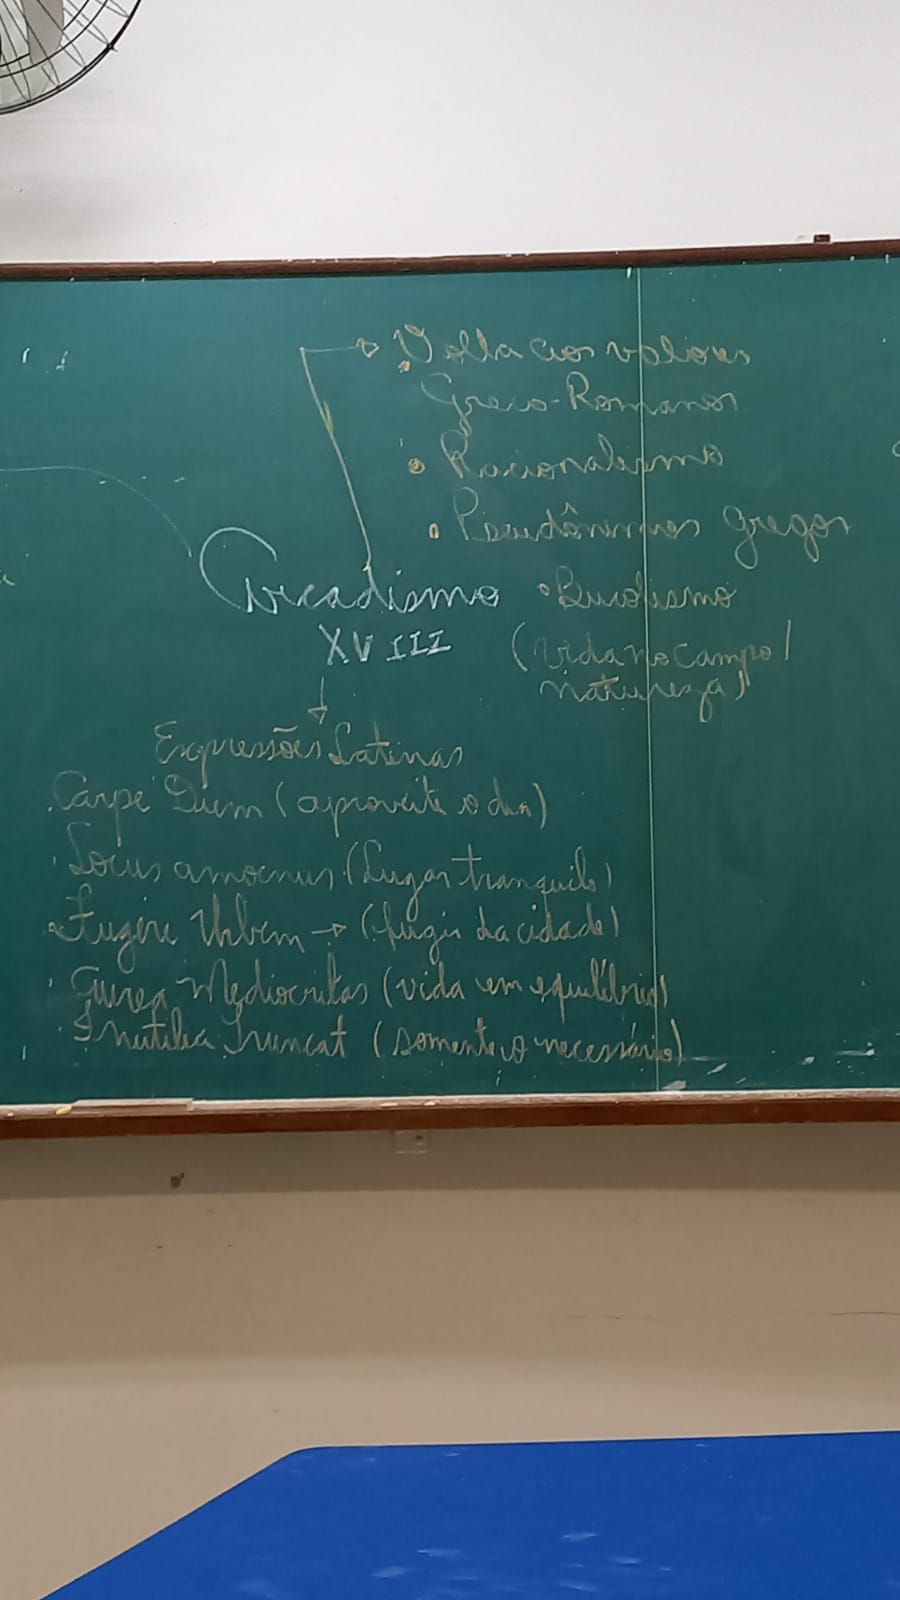 • Volta aos valores
Greco-Romanos
• Racionalismo
• Pseudônimos gregos
Arcadismo
• Bucolismo
XVIII
(vida no campo/
natureza)
Expressões Latinas
• Carpe Diem (aproveite o dia)
• Locus amoenus (Lugar tranquilo)
• Fugere Urbem → (fugir da cidade)
• Aurea Mediocritas (vida em equilíbrio)
• Inutilia Truncat (somente o necessário)